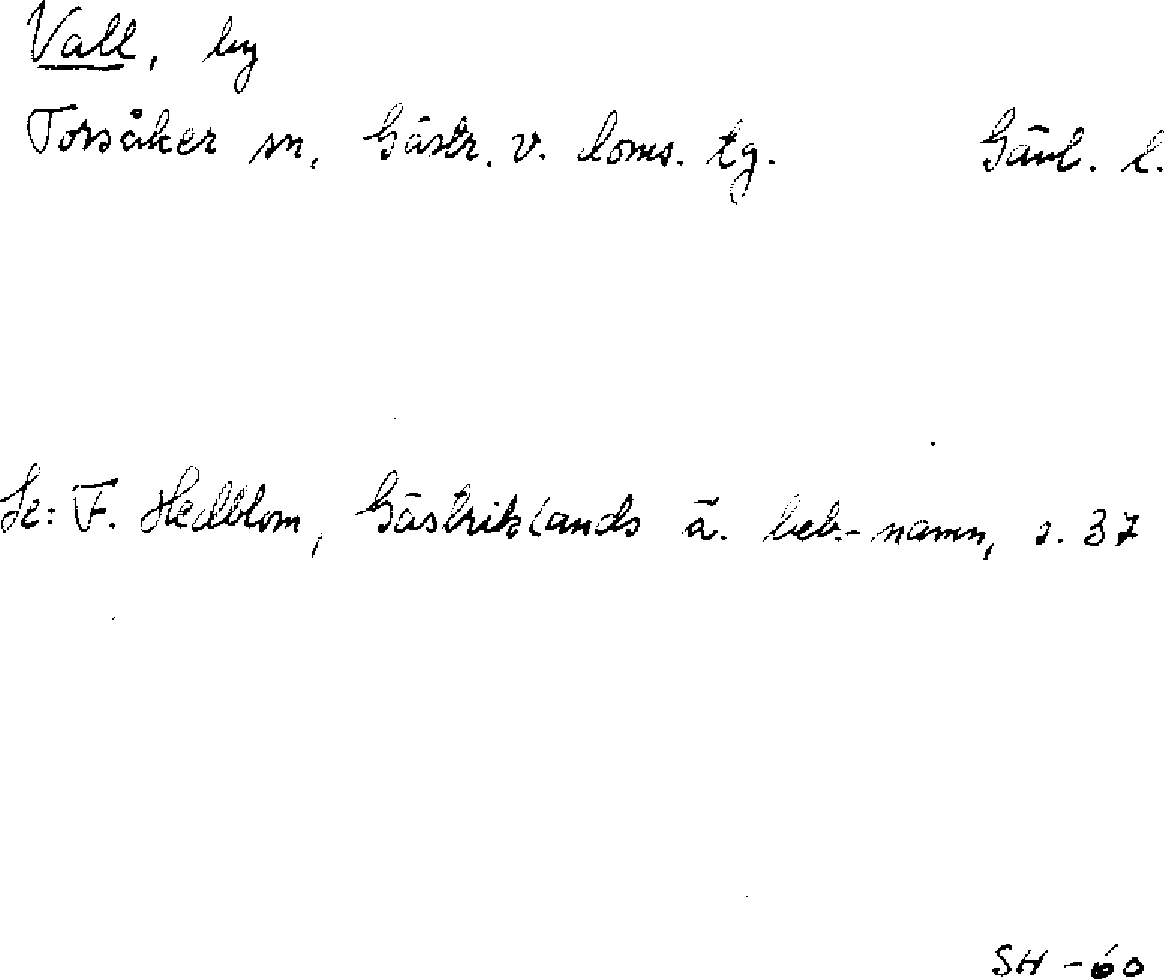 Vall, by
Torsåker sn. Gästr. v. doms. tg. Gävl. l.
Se: F. Hedblom, Gästriklands ä. beb.-namn, s. 37
SH -60